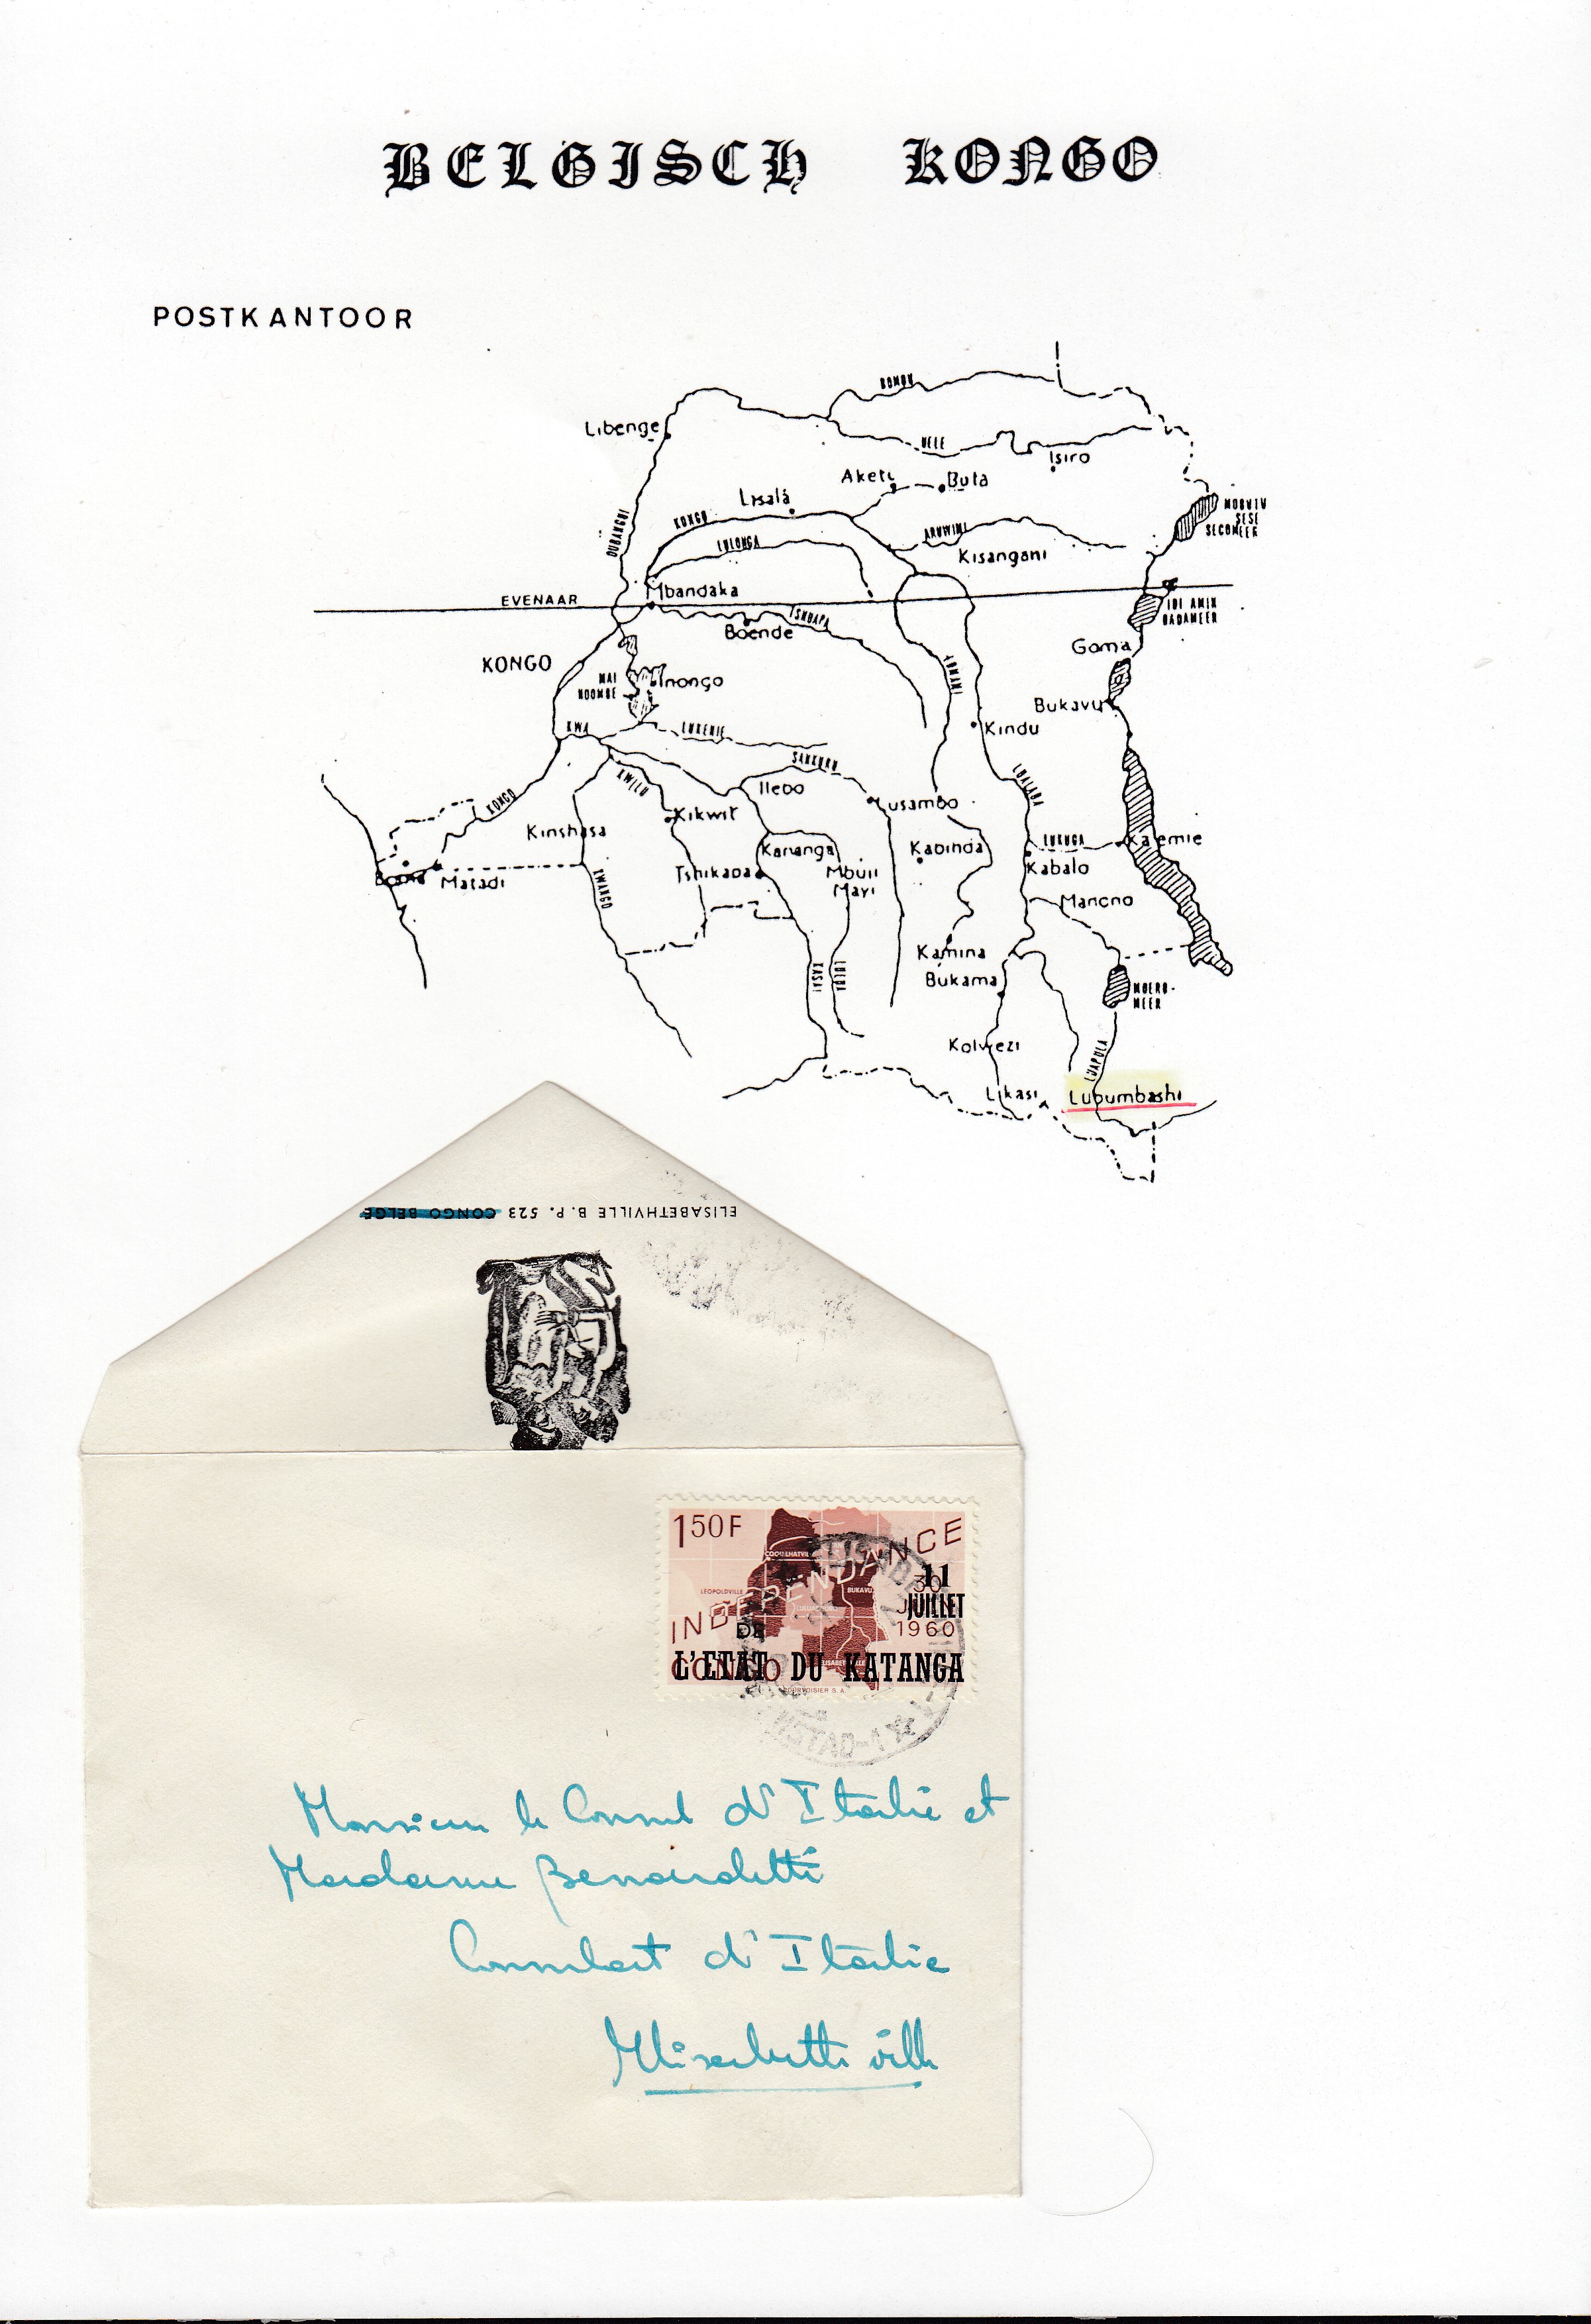 BELGISCH KONGO
POSTKANTOOR
BOMU
Libenge
UELE
Isiro
Aketi
Buta
Lisala
MOBUTU
SESE
SECOMEER
OUBANGUI
KONGO
LULONGA
ARUWIMI
Kisangani
EVENAAR
Mbandaka
TSHUAPA
Boende
IDI AMIN
DADAMEER
KONGO
Goma
MAI
NDOMBE
Inongo
LOMAMI
Bukavu
KWA
LUKENIE
Kindu
SANKURU
KWILU
Ilebo
LUALABA
KONGO
Kikwit
Lusambo
Kinshasa
Kananga
Kabinda
LUKUGA
Kalemie
Boma
Matadi
KWANGO
Tshikapa
Mbuji
Mayi
Kabalo
Manono
Kamina
KASAI
LULUA
Bukama
MOERO-
MEER
Kolwezi
LUAPULA
Likasi
Lubumbashi
ELISABETHVILLE B. P. 523 CONGO BELGE
1.50F
INDEPENDANCE
COQUILHATVILLE
LEOPOLDVILLE
BUKAVU
11
30
JUILLET
1960
DE
L'ETAT DU KATANGA
CONGO
ELISABETHVILLE
COURVOISIER S.A.
Monsieur le Consul d'Italie et
Madame Benardetti
Consulat d'Italie
Elisabethville